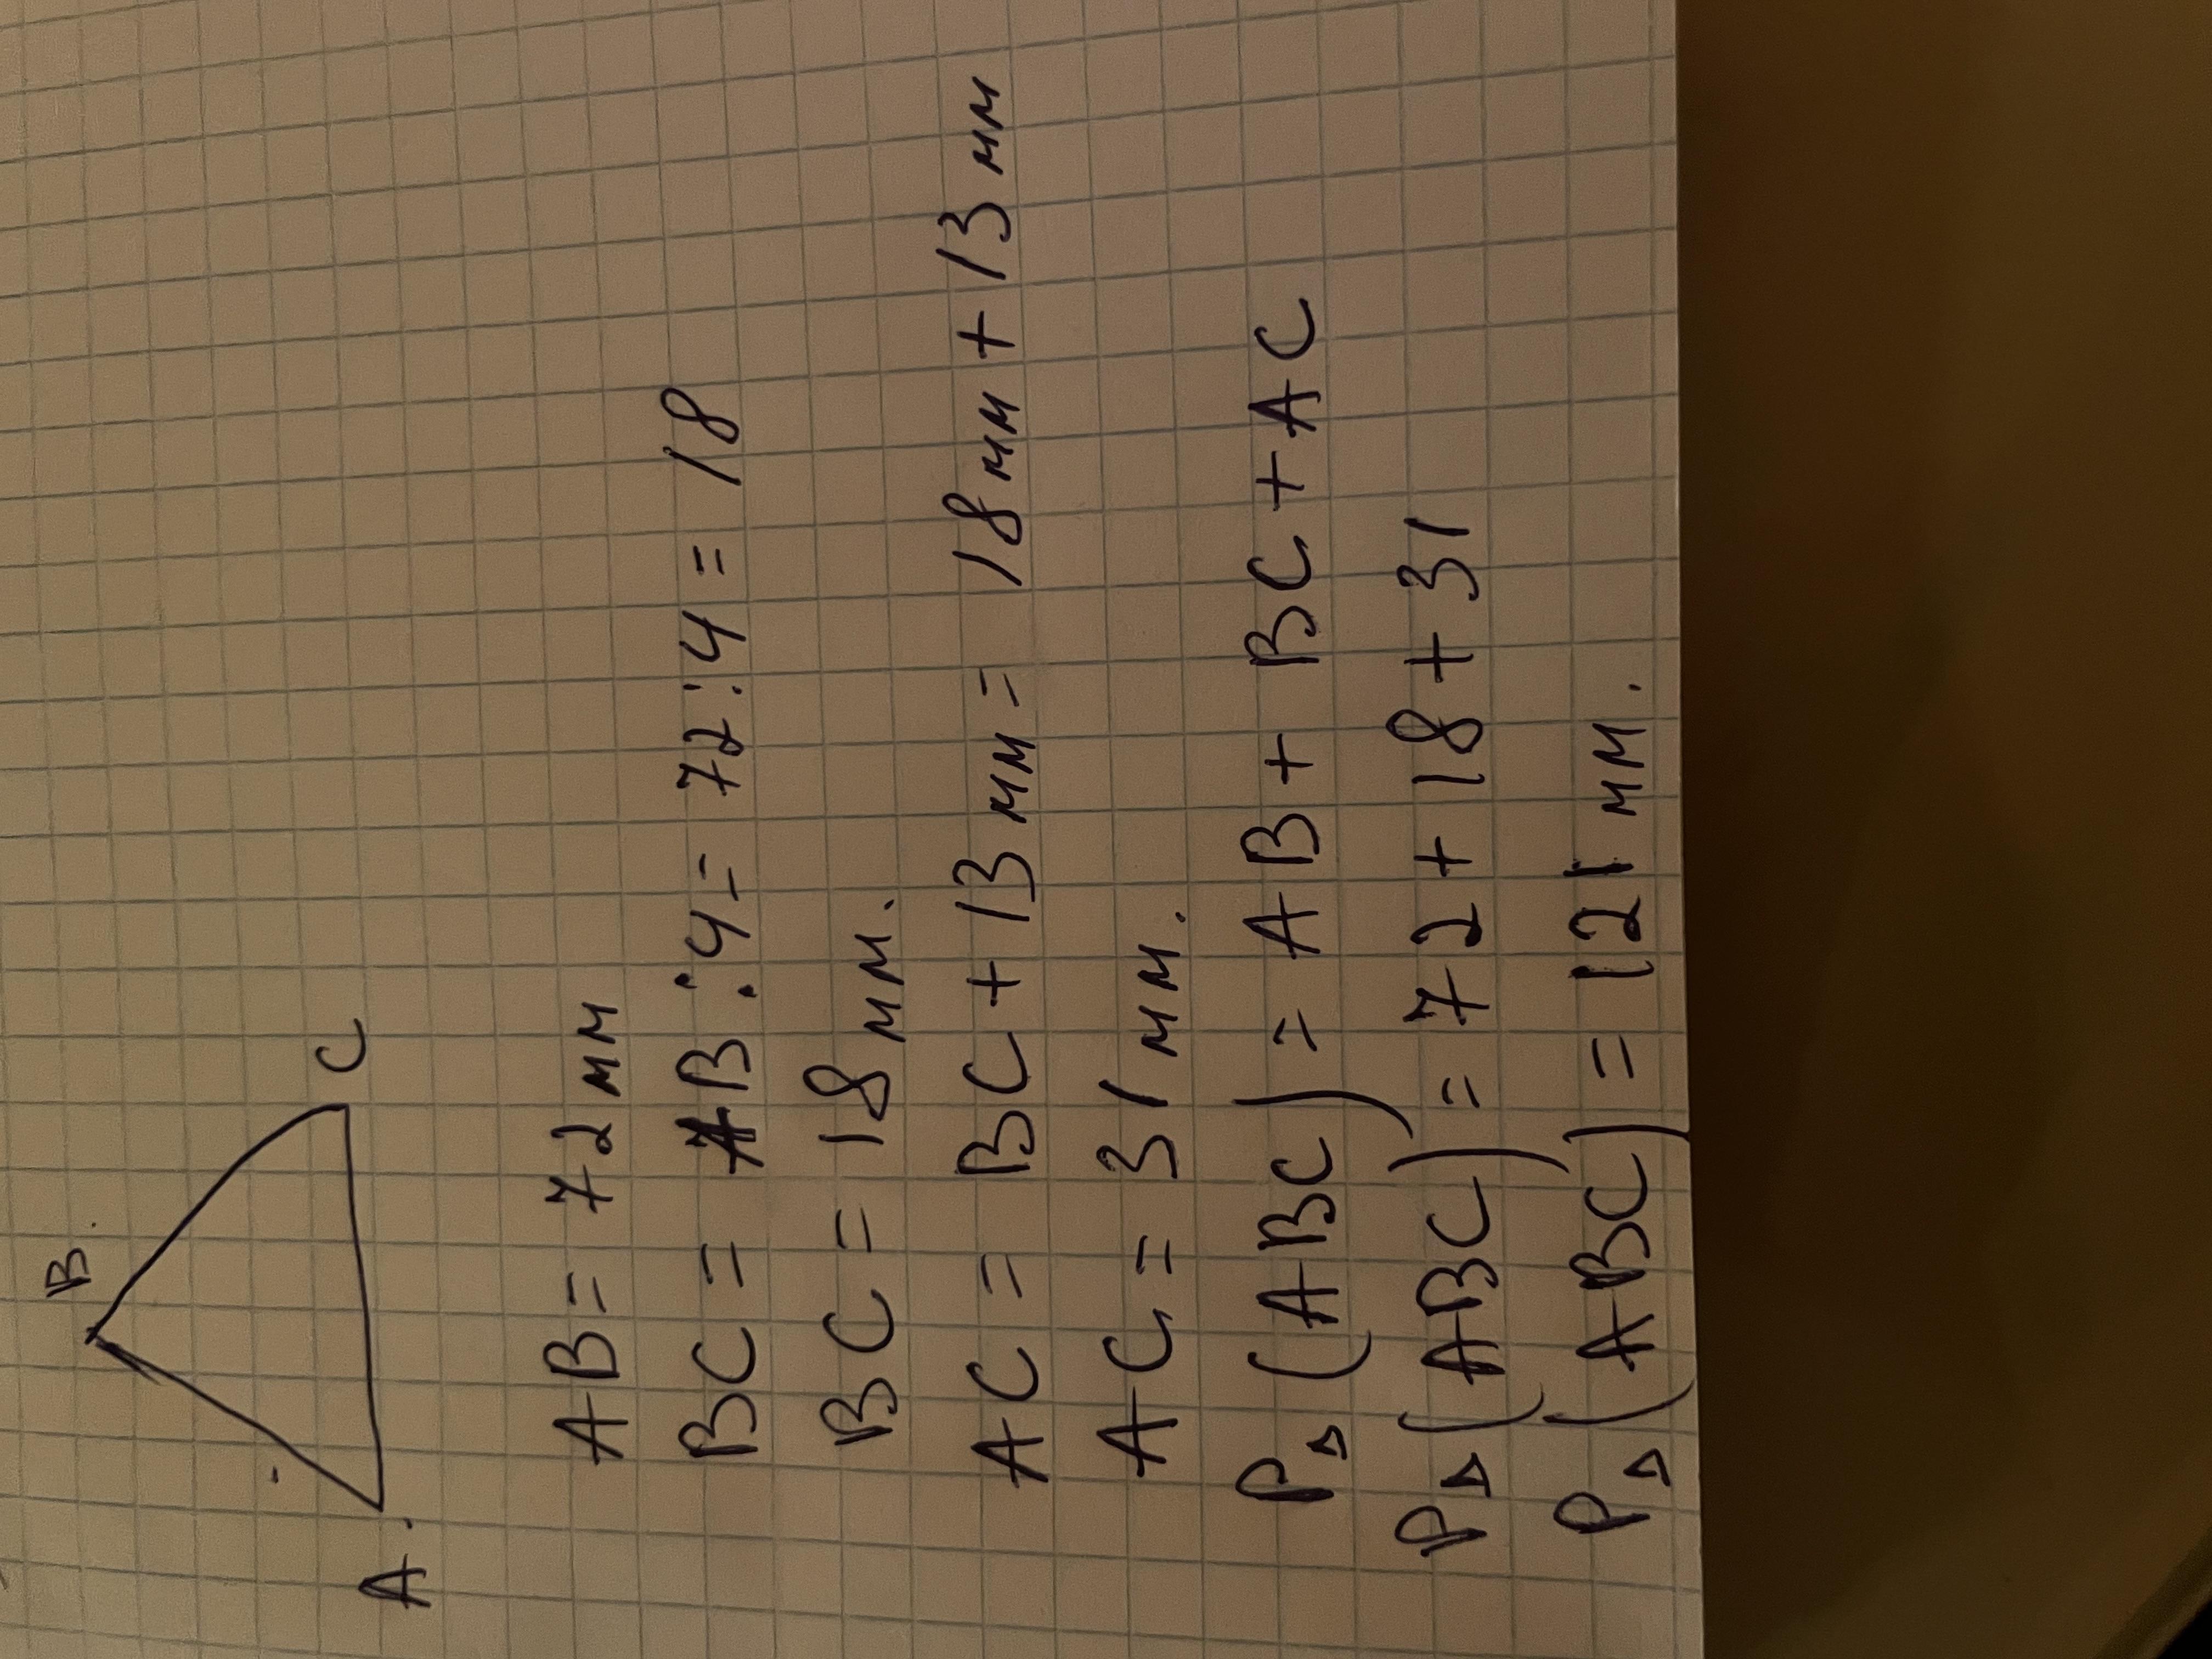 B
A. C
AB = 72 мм
BC = AB : 4 = 72 : 4 = 18
BC = 18 мм.
AC = BC + 13 мм = 18 мм + 13 мм
AC = 31 мм.
P△ (ABC) = AB + BC + AC
P△ (ABC) = 72 + 18 + 31
P△ (ABC) = 121 мм.